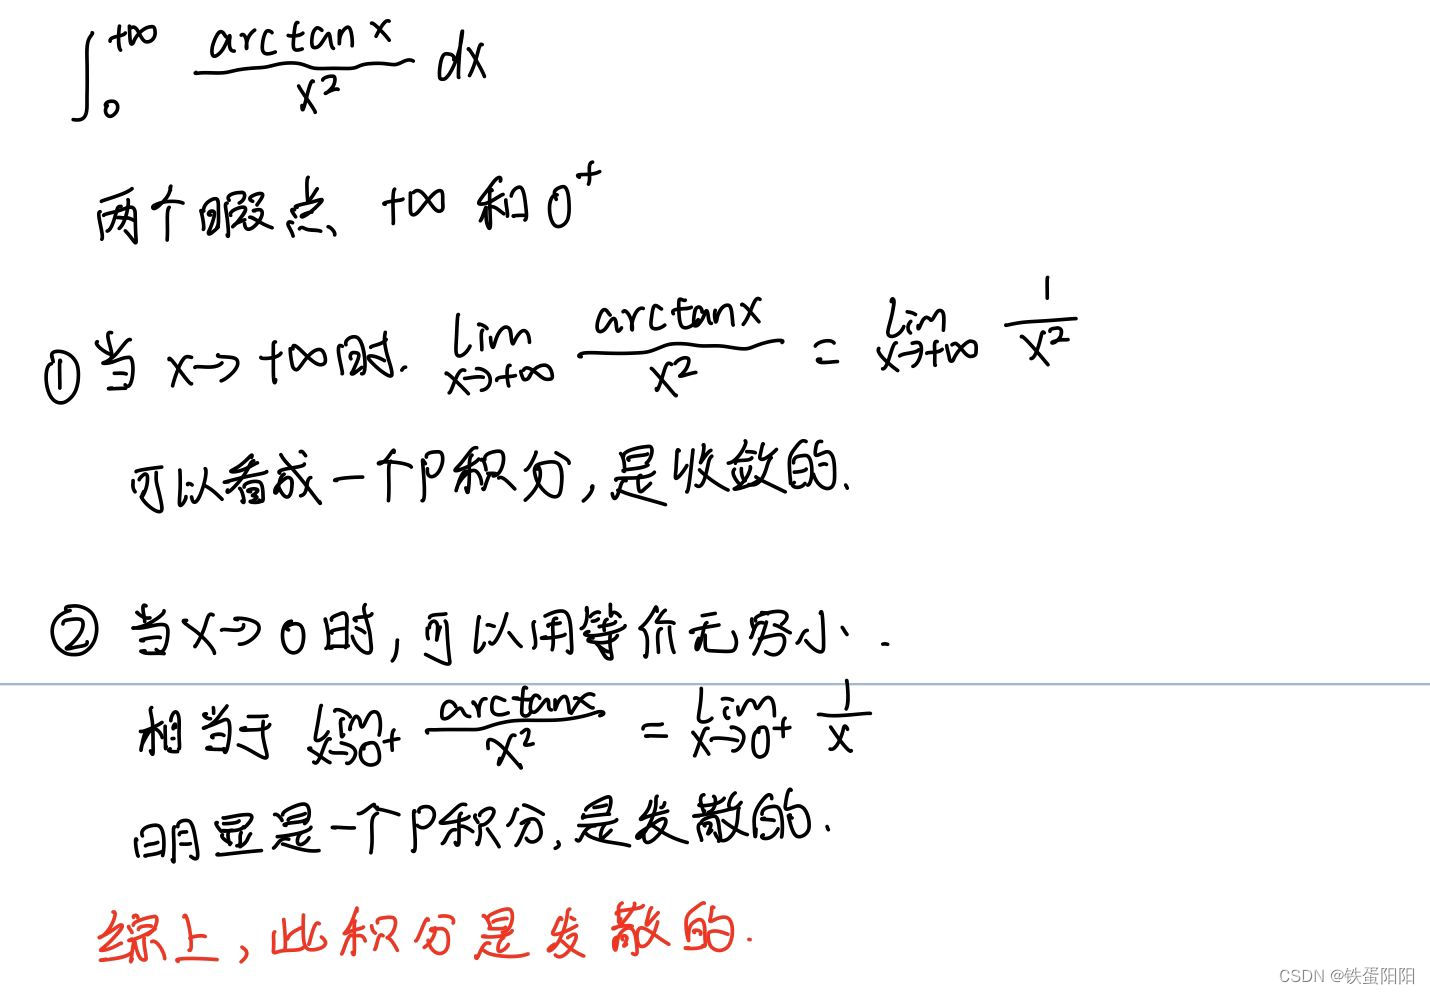 ∫₀^{+∞} arctan x / x² dx
两个暇点 +∞ 和 0⁺
① 当 x→+∞时. lim_{x→+∞} arctanx / x² = lim_{x→+∞} 1 / x²
可以看成一个P积分,是收敛的.
② 当x→0时,可以用等价无穷小.
相当于 lim_{x→0⁺} arctanx / x² = lim_{x→0⁺} 1 / x
明显是一个P积分,是发散的.
综上,此积分是发散的.
CSDN @铁蛋阳阳